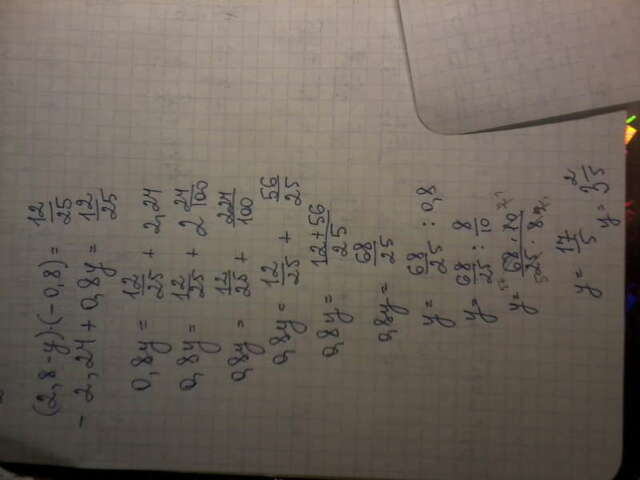 (2,8-y)·(-0,8) = 12/25
-2,24+0,8y = 12/25
0,8y = 12/25 + 2,24
0,8y = 12/25 + 2 24/100
0,8y = 12/25 + 224/100
0,8y = 12/25 + 56/25
0,8y = 12+56/25
0,8y = 68/25
y = 68/25 : 0,8
y = 68/25 : 8/10
y = 68·10/25·8
y = 17/5
y = 3 2/5